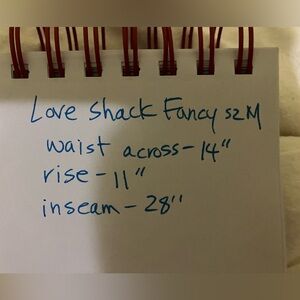 Love Shack Fancy SZ M
waist across - 14"
rise - 11"
inseam - 28"